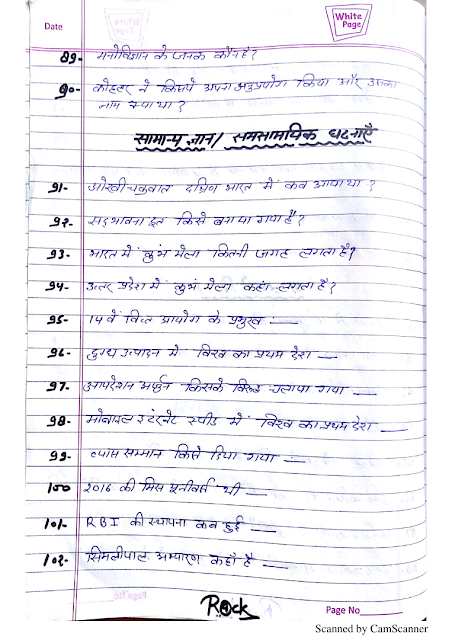 Date
White Page
89- मनोविज्ञान के जनक कौन है?
90- कोहलर ने किसपे अपना अनुप्रयोग किया और उसका
नाम क्या था?
सामान्य ज्ञान/ समसामयिक घटनाएँ
91- ओखी चक्रवात दक्षिण भारत में कब आया था?
92- सद्भावना दूत किसे बनाया गया है?
93- भारत में कुंभ मेला कितनी जगह लगता है?
94- उत्तर प्रदेश में कुंभ मेला कहां लगता है?
95- 14 वें वित्त आयोग के प्रमुख :—
96- दुग्ध उत्पादन में विश्व का प्रथम देश —
97- आपरेशन अर्जुन किसके विरुद्ध चलाया गया —
98- मोबाइल इंटरनेट स्पीड में विश्व का प्रथम देश —
99- व्यास सम्मान किसे दिया गया —
100 2016 की मिस यूनीवर्स थी —
101- RBI की स्थापना कब हुई —
102- सिमलीपाल अभ्यारण कहाँ है —
Rock
Page No
Scanned by CamScanner